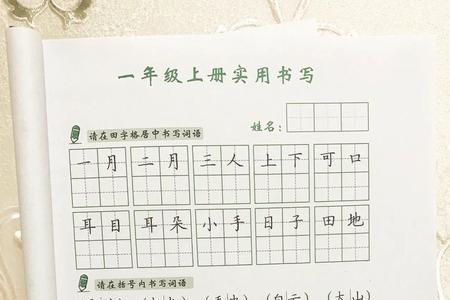 一年级上册实用书写
姓名：
请在田字格居中书写词语
一月 二月 三人 上下 可口
耳目 耳朵 小手 日子 田地
请在括号内书写词语
(白云) (大山)